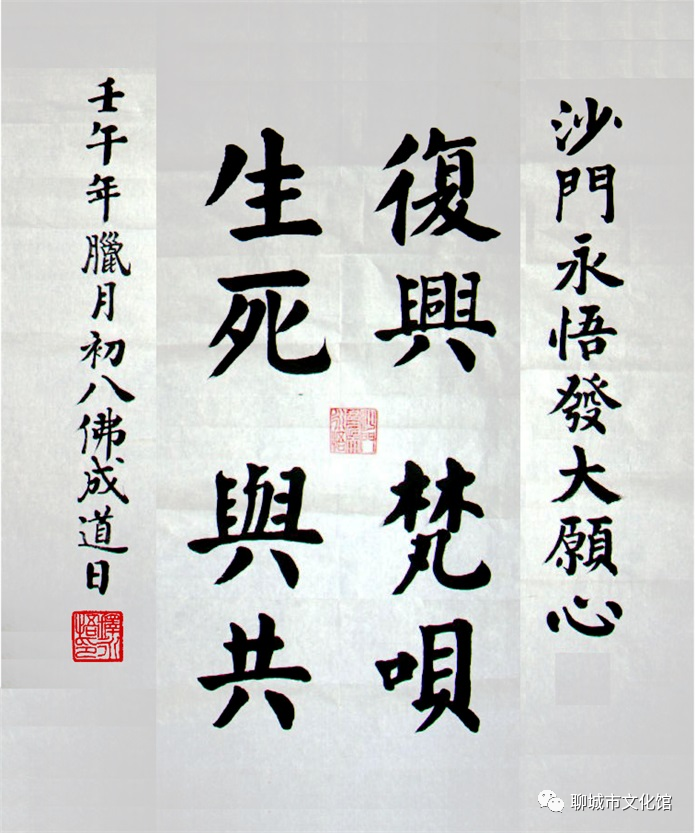 沙門永悟發大願心
復興梵唄
生死與共
壬午年臘月初八佛成道日
聊城市文化馆